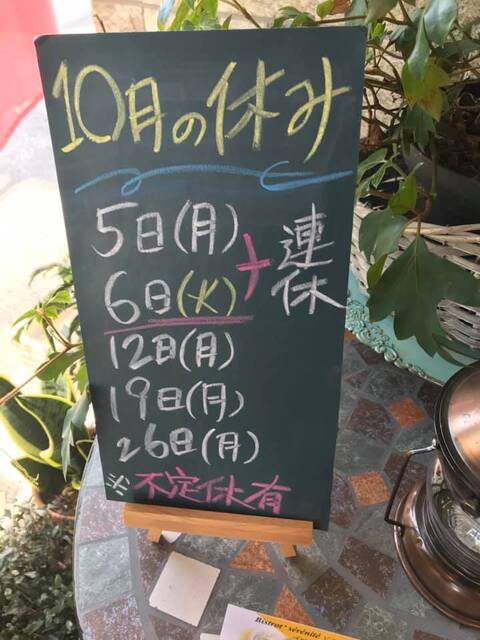 10月の休み
5日(月)
6日(火)
連休
12日(月)
19日(月)
26日(月)
※不定休有
Bistrot* sérénité